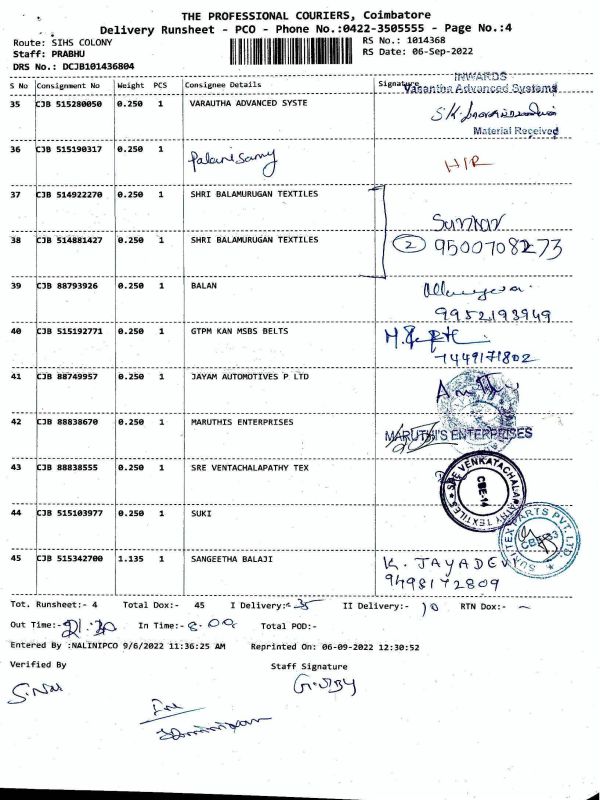 THE PROFESSIONAL COURIERS, Coimbatore
Delivery Runsheet - PCO - Phone No.:0422-3505555 - Page No.:4
Route: SIHS COLONY
RS No.: 1014368
Staff: PRABHU
RS Date: 06-Sep-2022
DRS No.: DCJB101436804
S No Consignment No Weight PCS Consignee Details Signature
INWARDS
Vasantha Advanced Systems
35 CJB 515280050 0.250 1 VARAUTHA ADVANCED SYSTE
Material Received
36 CJB 515190317 0.250 1 Palanisamy
37 CJB 514922270 0.250 1 SHRI BALAMURUGAN TEXTILES
38 CJB 514881427 0.250 1 SHRI BALAMURUGAN TEXTILES 2 9500708273
39 CJB 88793926 0.250 1 BALAN
9952193949
40 CJB 515192771 0.250 1 GTPM KAN MSBS BELTS
7449171802
41 CJB 88749957 0.250 1 JAYAM AUTOMOTIVES P LTD
42 CJB 88838670 0.250 1 MARUTHIS ENTERPRISES
MARUTHI'S ENTERPRISES
43 CJB 88838555 0.250 1 SRE VENTACHALAPATHY TEX
SRE VENKATACHALAPATHY TEXTILES
CBE-14
44 CJB 515103977 0.250 1 SUKI
PARTS PVT. LTD.
45 CJB 515342700 1.135 1 SANGEETHA BALAJI K. JAYADEVI
9498172809
Tot. Runsheet:- 4 Total Dox:- 45 I Delivery:- 35 II Delivery:- 10 RTN Dox:- ~
Out Time:- In Time:- 8.00 Total POD:-
Entered By :NALINIPCO 9/6/2022 11:36:25 AM Reprinted On: 06-09-2022 12:30:52
Verified By Staff Signature